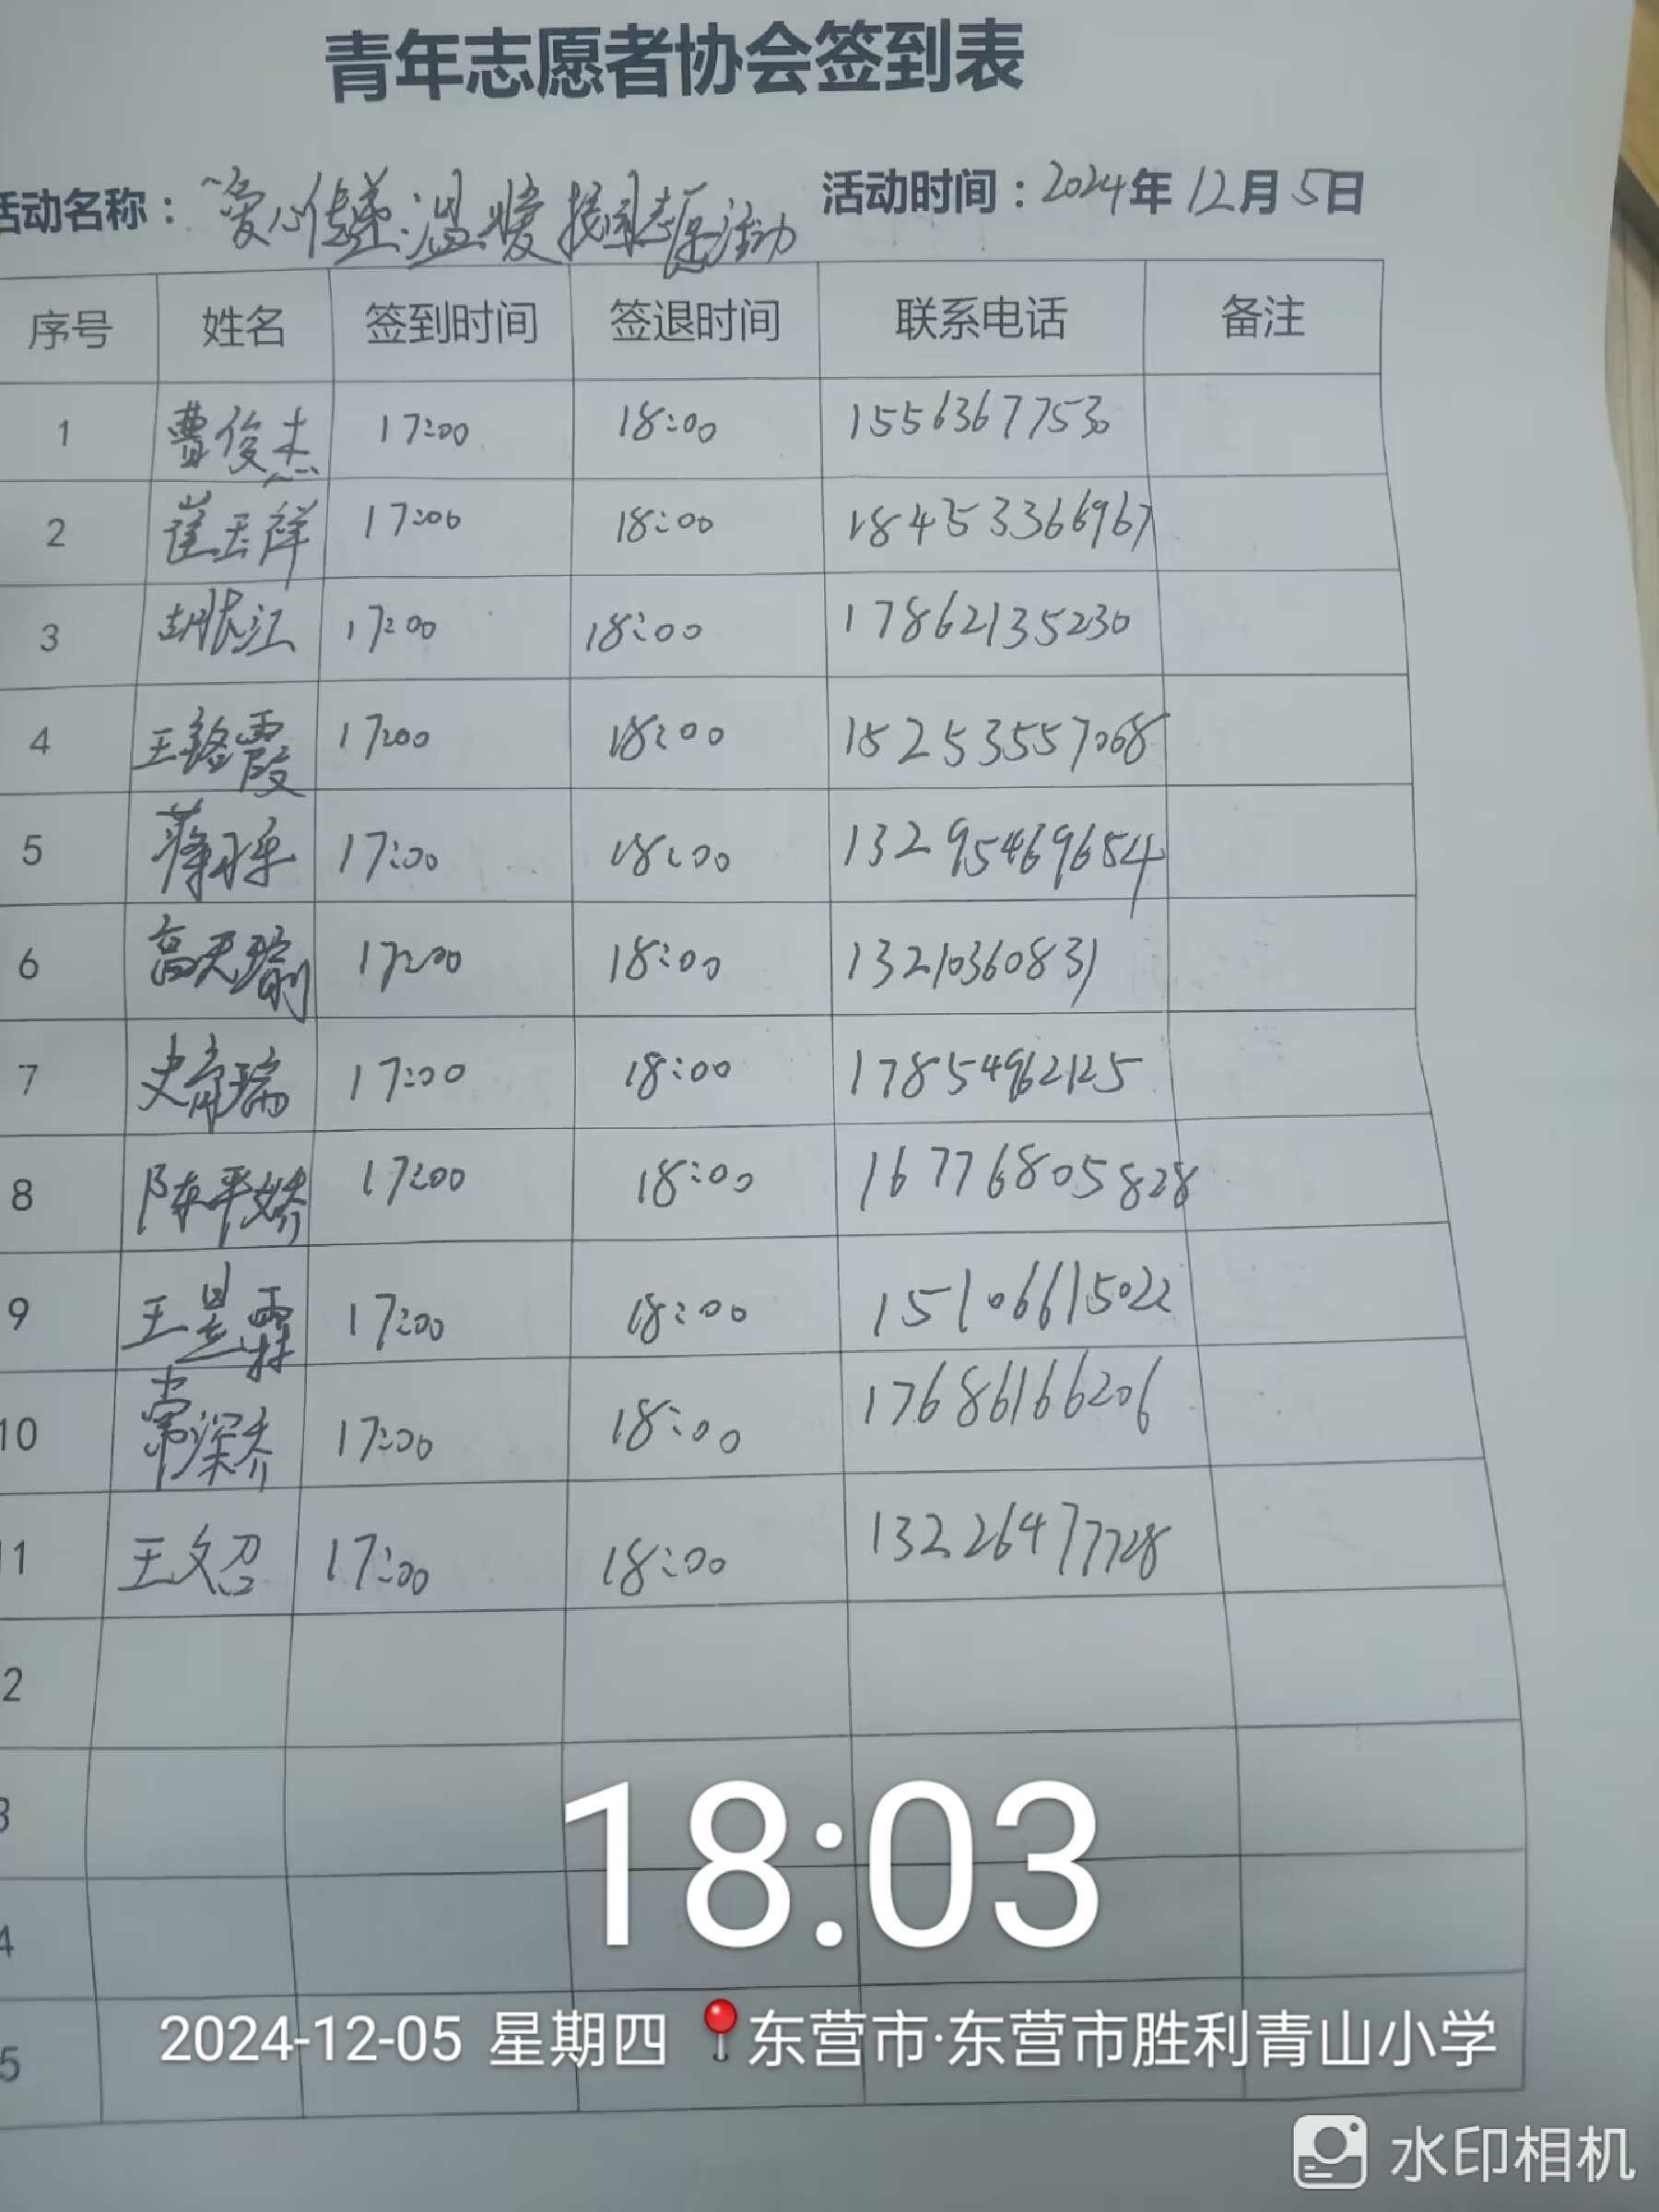 青年志愿者协会签到表
活动名称：“爱心传递·温暖校园志愿活动 活动时间：2024年12月5日
序号 姓名 签到时间 签退时间 联系电话 备注
1 曹俊杰 17:00 18:00 15563677530
2 崔玉祥 17:00 18:00 18453366967
3 胡长江 17:00 18:00 17862135230
4 王铭霞 17:00 18:00 15253557068
5 17:00 18:00 13295469654
6 高天瑜 17:00 18:00 13210360831
7 史 瑞 17:00 18:00 17854962125
8 陈平娇 17:00 18:00 16776805828
9 王昱霖 17:00 18:00 15106615022
10 常深乔 17:00 18:00 17686166206
11 王文召 17:00 18:00 13226477728
2
3
4
5
18:03
2024-12-05 星期四 东营市·东营市胜利青山小学
水印相机